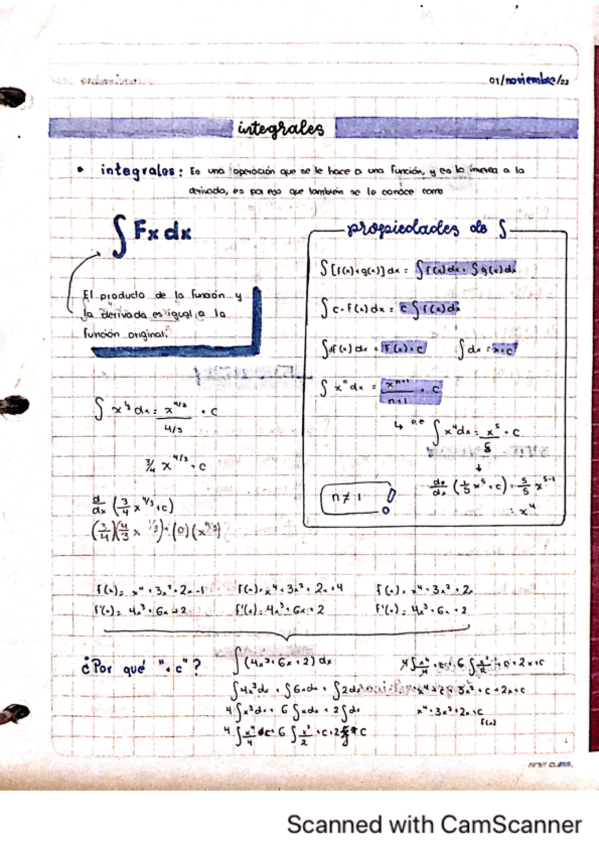 01/noviembre/22
integrales
• integrales: Es una operación que se le hace a una función, y es la inversa a la
derivada, es por eso que también se le conoce como
∫ Fx dx
El producto de la función y
la derivada es igual a la
función original.
propiedades de ∫
∫[f(x)+g(x)]dx = ∫f(x)dx + ∫g(x)dx
∫c·f(x)dx = c∫f(x)dx
∫df(x)dx = F(x)+c ∫dx = x+c
∫x^n dx = x^(n+1)/(n+1) + c
↳ p.e ∫x^4dx = x^5/5 + c
d/dx (1/5 x^5 + c) = 5/5 x^(5-1)
= x^4
n ≠ 1 !
∫x^(1/3) dx = x^(4/3)/(4/3) + c
3/4 x^(4/3) + c
d/dx (3/4 x^(4/3) + c)
(3/4)(4/3 x^(1/3)) + (0)(x^(4/3))
f(x) = x^4 + 3x^2 + 2x - 1 f(x) = x^4 + 3x^2 + 2x + 4 f(x) = x^4 + 3x^2 + 2x
f'(x) = 4x^3 + 6x + 2 f'(x) = 4x^3 + 6x + 2 f'(x) = 4x^3 + 6x + 2
¿Por qué "+c"?
∫(4x^3 + 6x + 2)dx
∫4x^3dx + ∫6xdx + ∫2dx
4∫x^3dx + 6∫xdx + 2∫dx
x^4 + 3x^2 + 2x + c
f(x)
FIRST CLASS.
Scanned with CamScanner